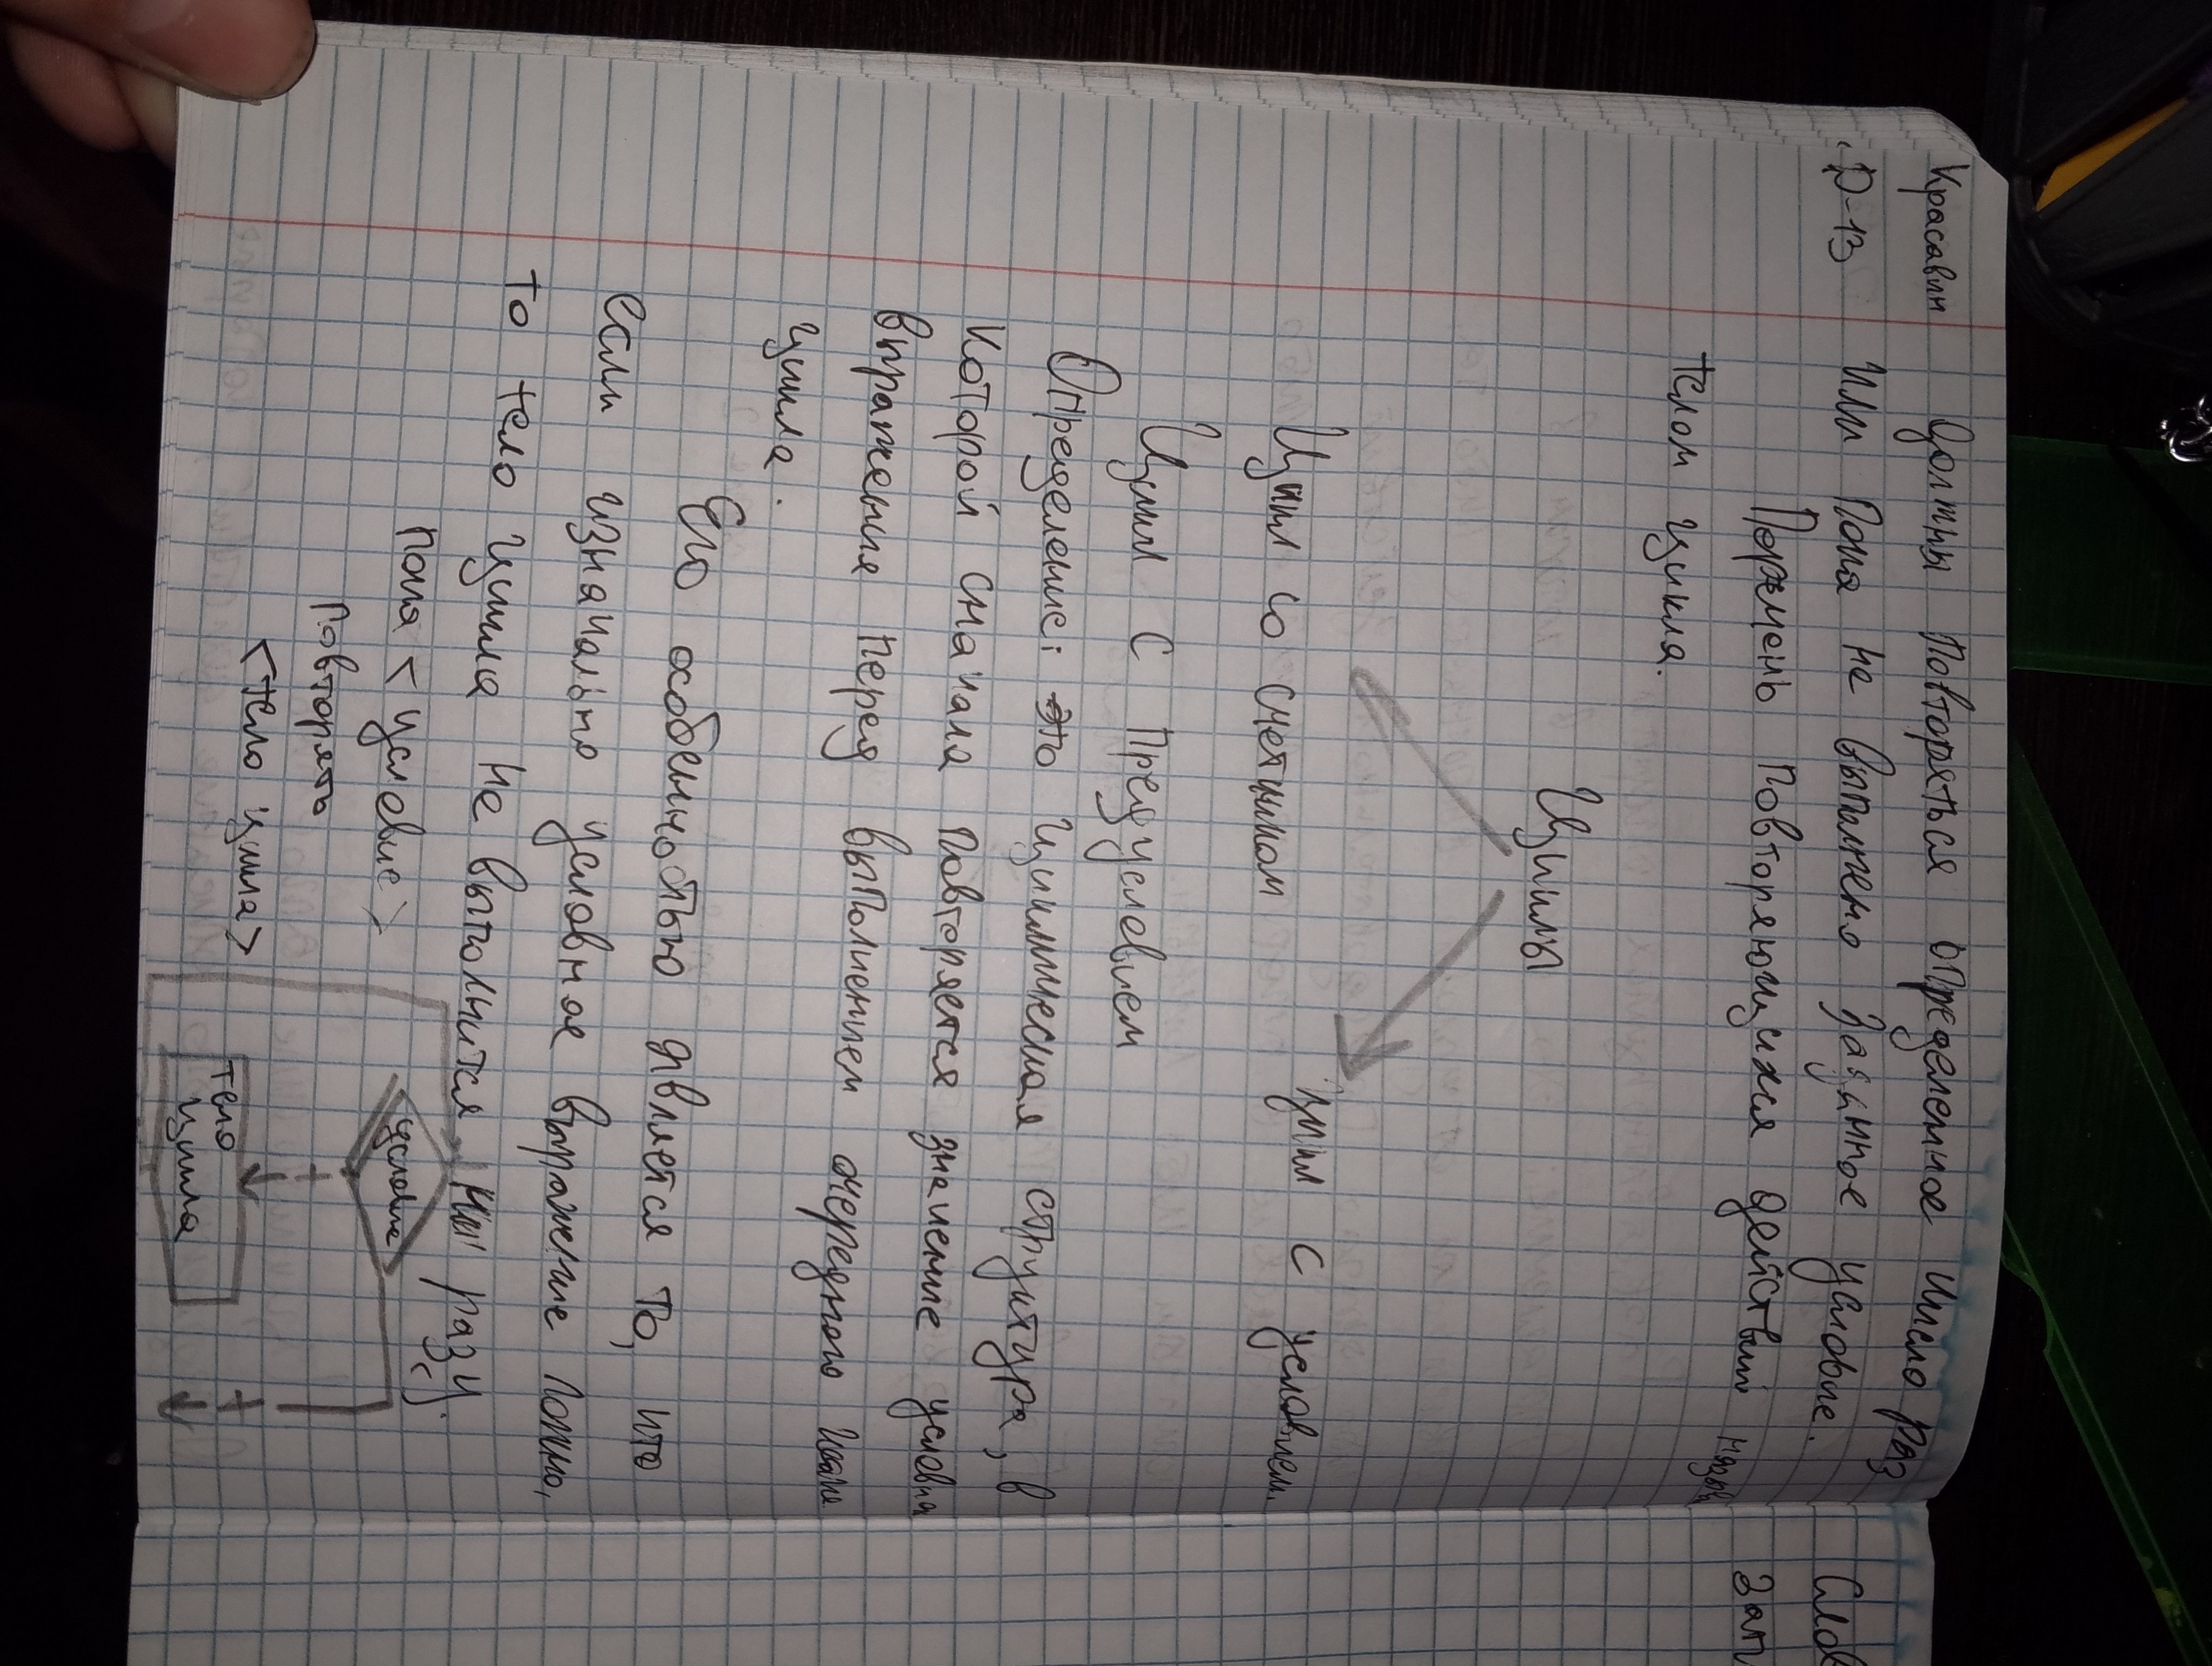 Красавин
Д-13
Должны Повторяться определенное число раз
или Пока не выполнено заданное условие.
Перечень Повторяющихся действий назыв
телом цикла.
Циклы
Цикл со счетчиком
Цикл с условием.
Цикл с Предусловием
Определение: это Циклическая структура, в
Которой сначала Повторяется значение условия
выражения перед выполнением очередного шага
цикла.
Его особенностью является то, что
если изначально условное выражение ложно,
то тело цикла не выполнится ни разу.
пока < условие >
Повторять
<тело цикла>
условие
+
тело
цикла
+
Слов
Зап